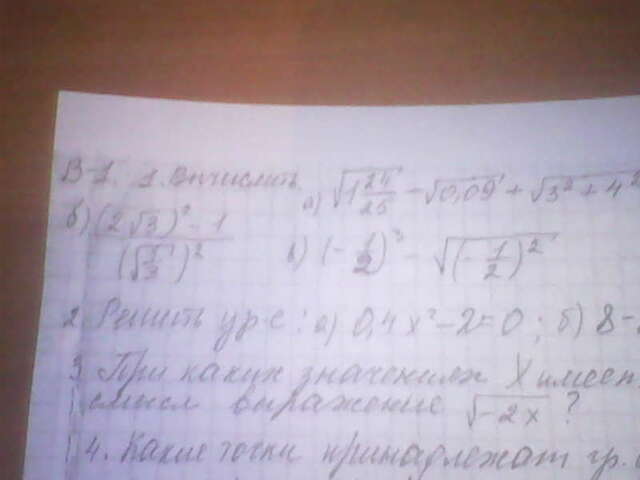 В-1. 1. Вычислить а) √(1 24/25) - √0,09 + √(3² + 4²
б) ((2√3)² - 1)/(√(1/3))² в) (-1/2)³ - √((-1/2)²)
2 Решить ур-е: а) 0,4x² - 2 = 0; б) 8 -
3 При каких значениях X имеет
смысл выражение √(-2x) ?
4. Какие точки принадлежат гр.